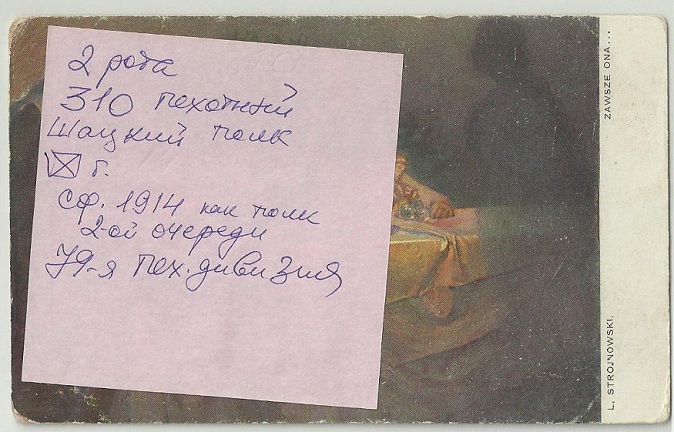 2 рота
310 пехотный
Шацкий полк
г.
сф. 1914 как полк
2-ой очереди
79-я пех. дивизия
ZAWSZE ONA...
L, STROJNOWSKI.